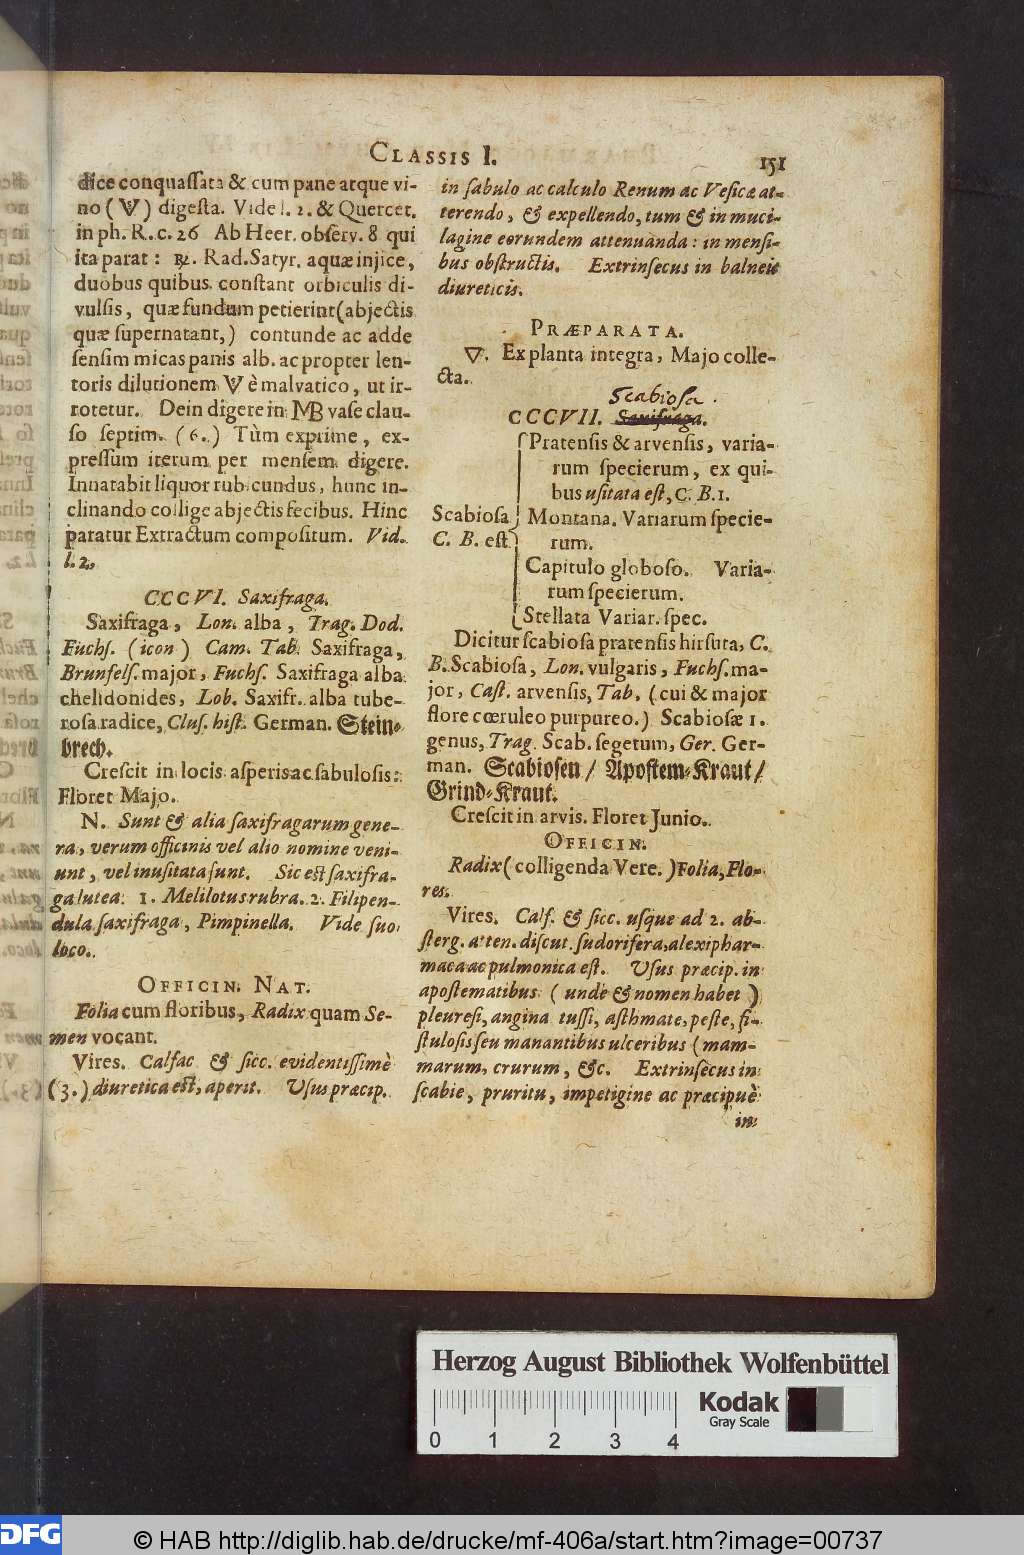 CLASSIS I.
151
dice conquassata & cum pane atque vi-
no (V) digesta. Vide l. 2. & Quercet.
in ph. R. c. 26 Ab Heer. observ. 8 qui
ita parat: ℞. Rad. Satyr. aquæ injice,
duobus quibus constant orbiculis di-
vulsis, quæ fundum petierint (abjectis
quæ supernatant,) contunde ac adde
sensim micas panis alb. ac propter len-
toris dilutionem V è malvatico, ut ir-
rotetur. Dein digere in MB vase clau-
so septim. (6.) Tùm exprime, ex-
pressum iterum per mensem digere.
Innatabit liquor rubicundus, hunc in-
clinando collige abjectis fecibus. Hinc
paratur Extractum compositum. Vid.
l. 2.
CCCVI. Saxifraga.
Saxifraga, Lon. alba, Trag. Dod.
Fuchs. (icon) Cam. Tab. Saxifraga,
Brunfels. major, Fuchs. Saxifraga alba
chelidonides, Lob. Saxifr. alba tube-
rosa radice, Clus. hist. German. Stein-
brech.
Crescit in locis asperis ac sabulosis:
Floret Majo.
N. Sunt & alia saxifragarum gene-
ra, verum officinis vel alio nomine veni-
unt, vel inusitata sunt. Sic est saxifra-
ga lutea. 1. Melilotus rubra. 2. Filipen-
dula saxifraga, Pimpinella. Vide suo
loco.
OFFICIN. NAT.
Folia cum floribus, Radix quam Se-
men vocant.
Vires. Calfac & sicc. evidentissimè
(3.) diuretica est, aperit. Usus præcip.
in sabulo ac calculo Renum ac Vesicæ at-
terendo, & expellendo, tum & in muci-
lagine eorundem attenuanda: in mensi-
bus obstructis. Extrinsecus in balneis
diureticis.
PRÆPARATA.
▽. Ex planta integra, Majo colle-
cta.
Scabiosa.
CCCVII. Saxifraga.
Pratensis & arvensis, varia-
rum specierum, ex qui-
bus usitata est, C. B. 1.
Scabiosa Montana. Variarum specie-
C. B. est rum.
Capitulo globoso. Varia-
rum specierum.
Stellata Variar. spec.
Dicitur scabiosa pratensis hirsuta, C.
B. Scabiosa, Lon. vulgaris, Fuchs. ma-
jor, Cast. arvensis, Tab. (cui & major
flore cœruleo purpureo.) Scabiosæ 1.
genus, Trag. Scab. segetum, Ger. Ger-
man. Scabiosen / Apostem-Kraut /
Grind-Kraut.
Crescit in arvis. Floret Junio.
OFFICIN.
Radix (colligenda Vere.) Folia, Flo-
res.
Vires. Calf. & sicc. usque ad 2. ab-
sterg. atten. discut. sudorifera, alexiphar-
maca ac pulmonica est. Usus præcip. in
apostematibus (unde & nomen habet)
pleuresi, angina tussi, asthmate, peste, fi-
stulosis seu manantibus ulceribus (mam-
marum, crurum, &c. Extrinsecus in
scabie, pruritu, impetigine ac præcipuè
in
Herzog August Bibliothek Wolfenbüttel
Kodak
Gray Scale
0 1 2 3 4
DFG
© HAB http://diglib.hab.de/drucke/mf-406a/start.htm?image=00737